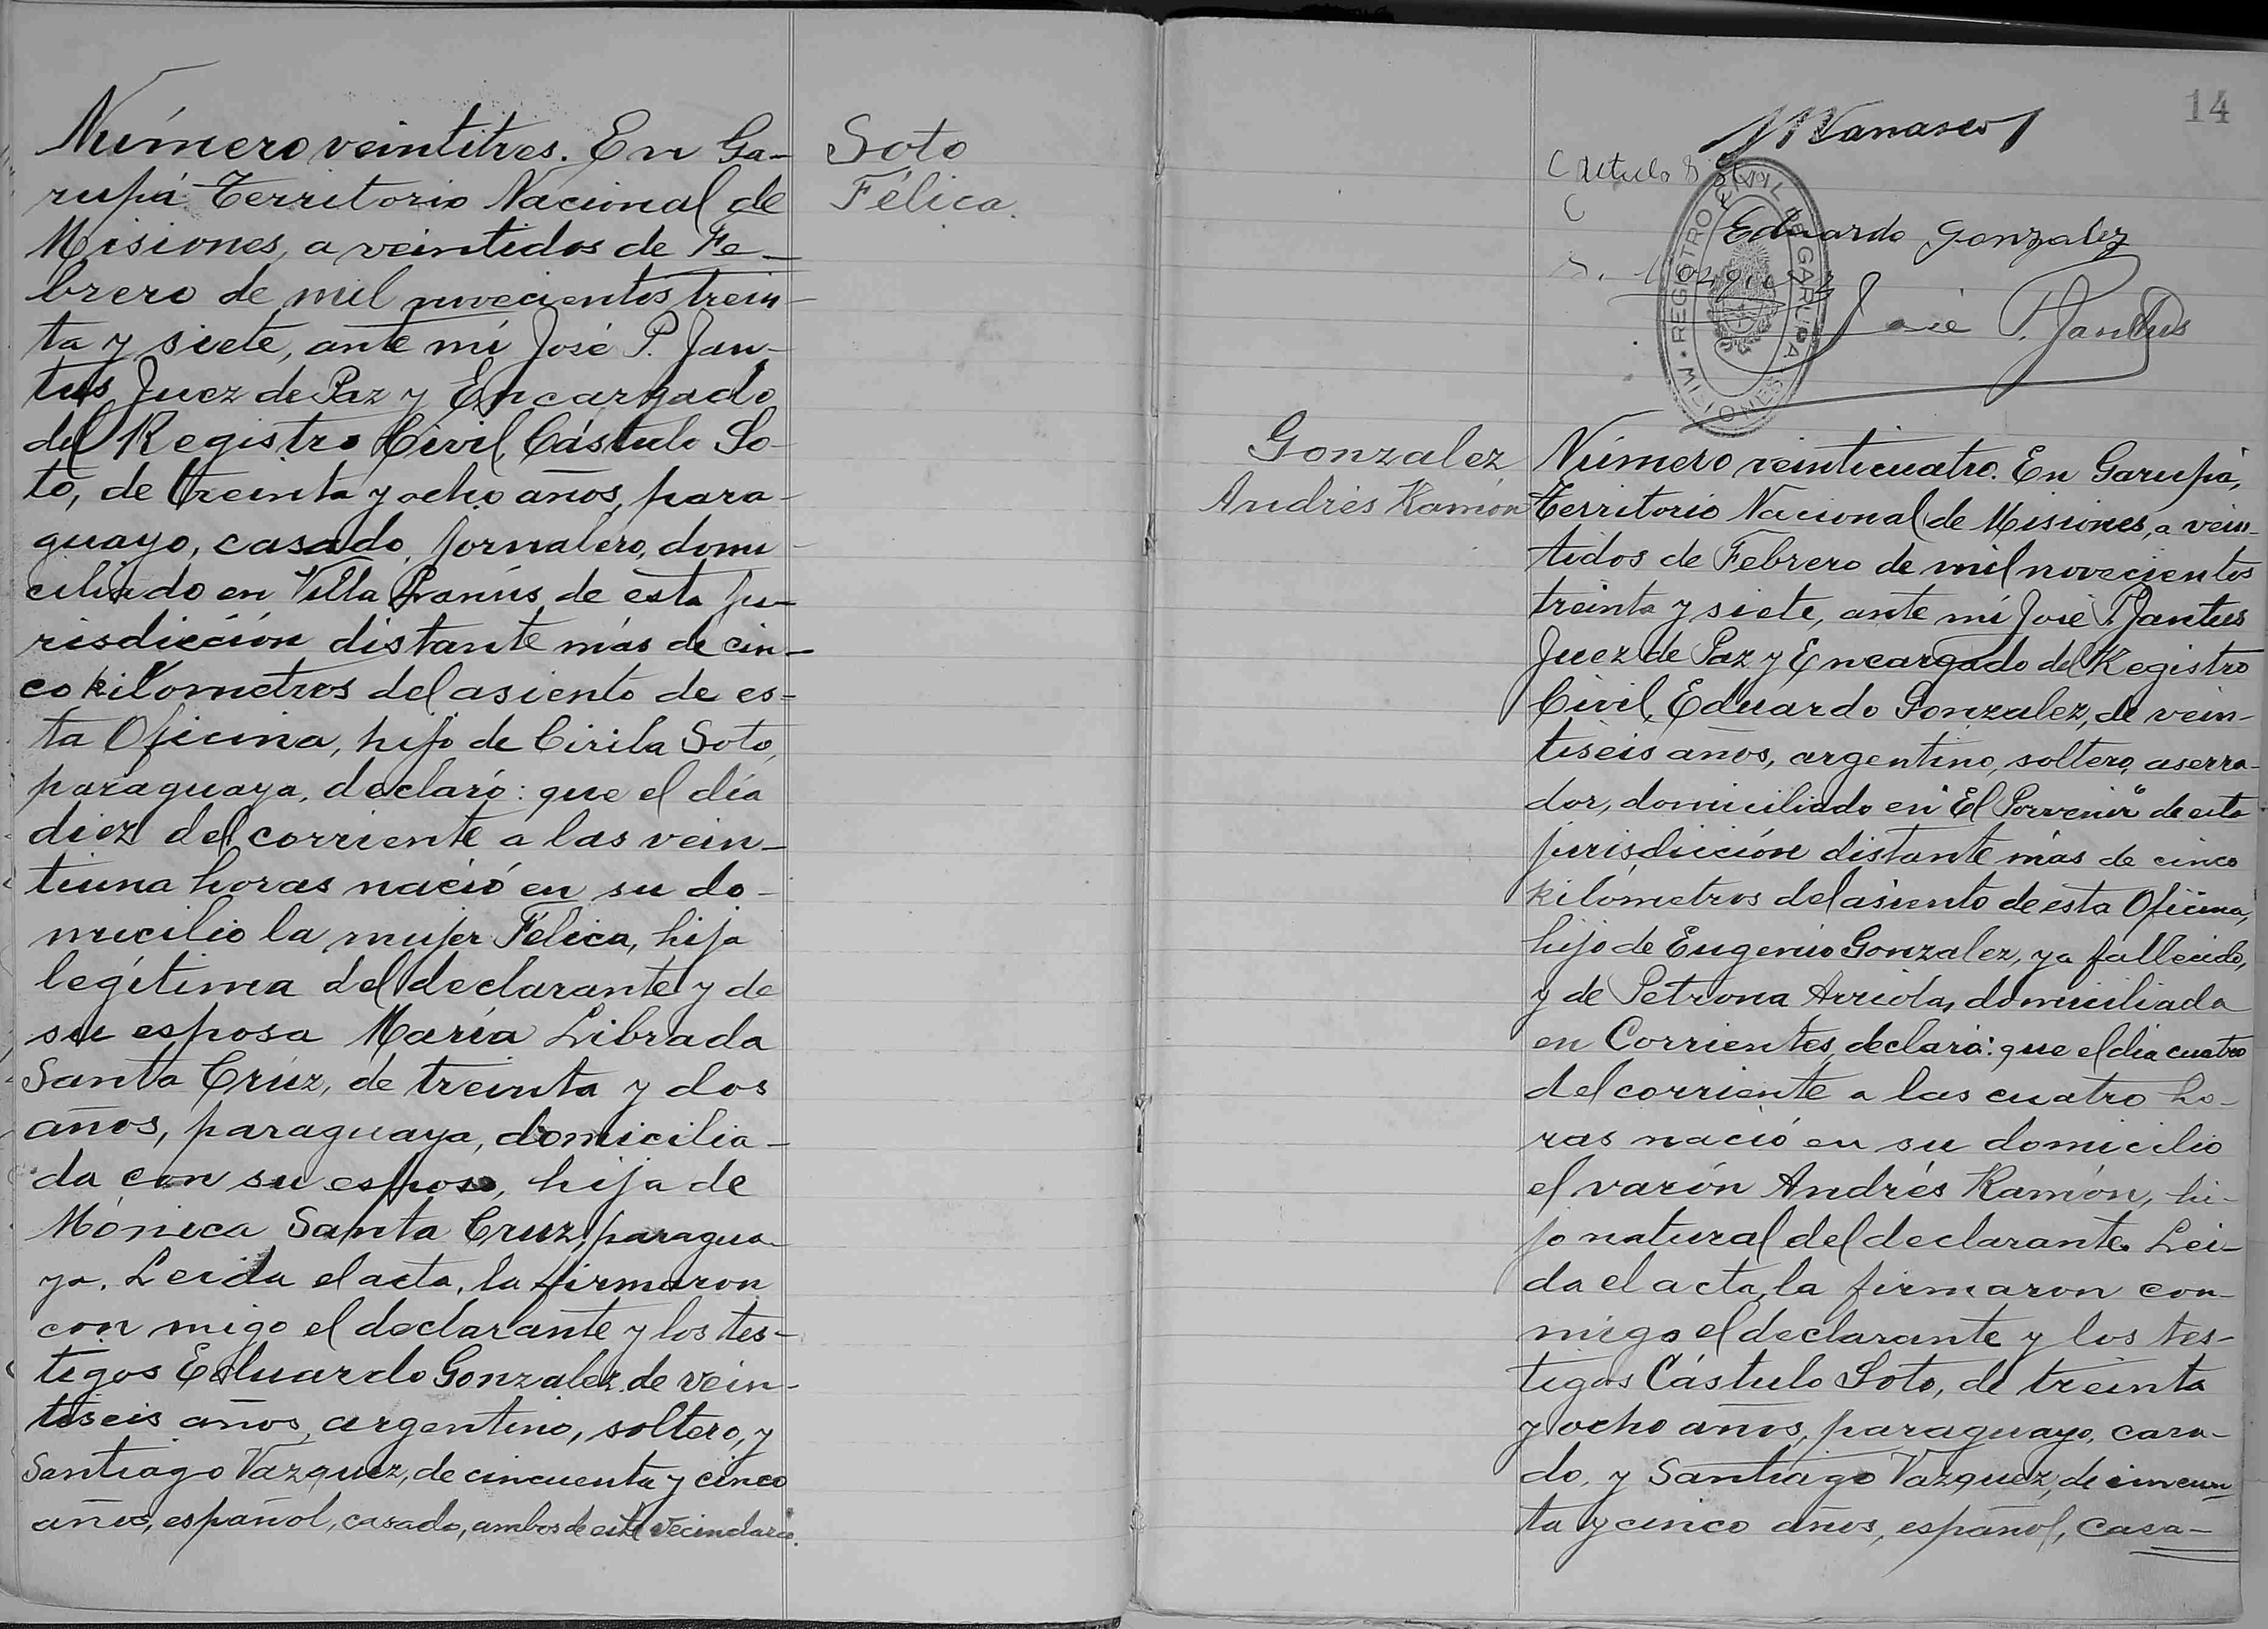 Número veintitres. En Ga-
rupá Territorio Nacional de
Misiones, a veintidos de Fe-
brero de mil novecientos trein-
ta y siete, ante mí José P. Jan-
tus Juez de Paz y Encargado
del Registro Civil, Cástulo So-
to, de treinta y ocho años, para-
guayo, casado, jornalero, domi-
ciliado en Villa de esta ju-
risdicción distante más de cin-
co kilometros del asiento de es-
ta Oficina, hijo de Cirila Soto,
paraguaya, declaró: que el día
diez del corriente a las vein-
tiuna horas nació en su do-
micilio la mujer Félica, hija
legítima del declarante y de
su esposa María Librada
Santa Cruz, de treinta y dos
años, paraguaya, domicilia-
da con su esposo, hija de
Mónica Santa Cruz, paragua-
ya. Leida el acta, la firmaron
con migo el declarante y los tes-
tigos Eduardo Gonzalez de vein-
tiseis años, argentino, soltero, y
Santiago Vazquez, de cincuenta y cinco
años, español, casado, ambos de este vecindario.
Soto
Félica.
14
Eduardo Gonzalez
José P. Jantus
REGISTRO CIVIL DE GARUPA
MISIONES
Gonzalez
Andrés Ramón
Número veinticuatro. En Garupá,
Territorio Nacional de Misiones, a vein-
tidos de Febrero de mil novecientos
treinta y siete, ante mí José P. Jantus
Juez de Paz y Encargado del Registro
Civil, Eduardo Gonzalez, de vein-
tiseis años, argentino, soltero, aserra-
dor, domiciliado en "El Porvenir" de esta
jurisdicción distante más de cinco
kilómetros del asiento de esta Oficina,
hijo de Eugenio Gonzalez, ya fallecido,
y de Petrona Arriola, domiciliada
en Corrientes, declaró: que el día cuatro
del corriente a las cuatro ho-
ras nació en su domicilio
el varón Andrés Ramón, hi-
jo natural del declarante. Lei-
da el acta, la firmaron con-
migo el declarante y los tes-
tigos Cástulo Soto, de treinta
y ocho años, paraguayo, casa-
do, y Santiago Vazquez, de cincuen
ta y cinco años, español, casa-